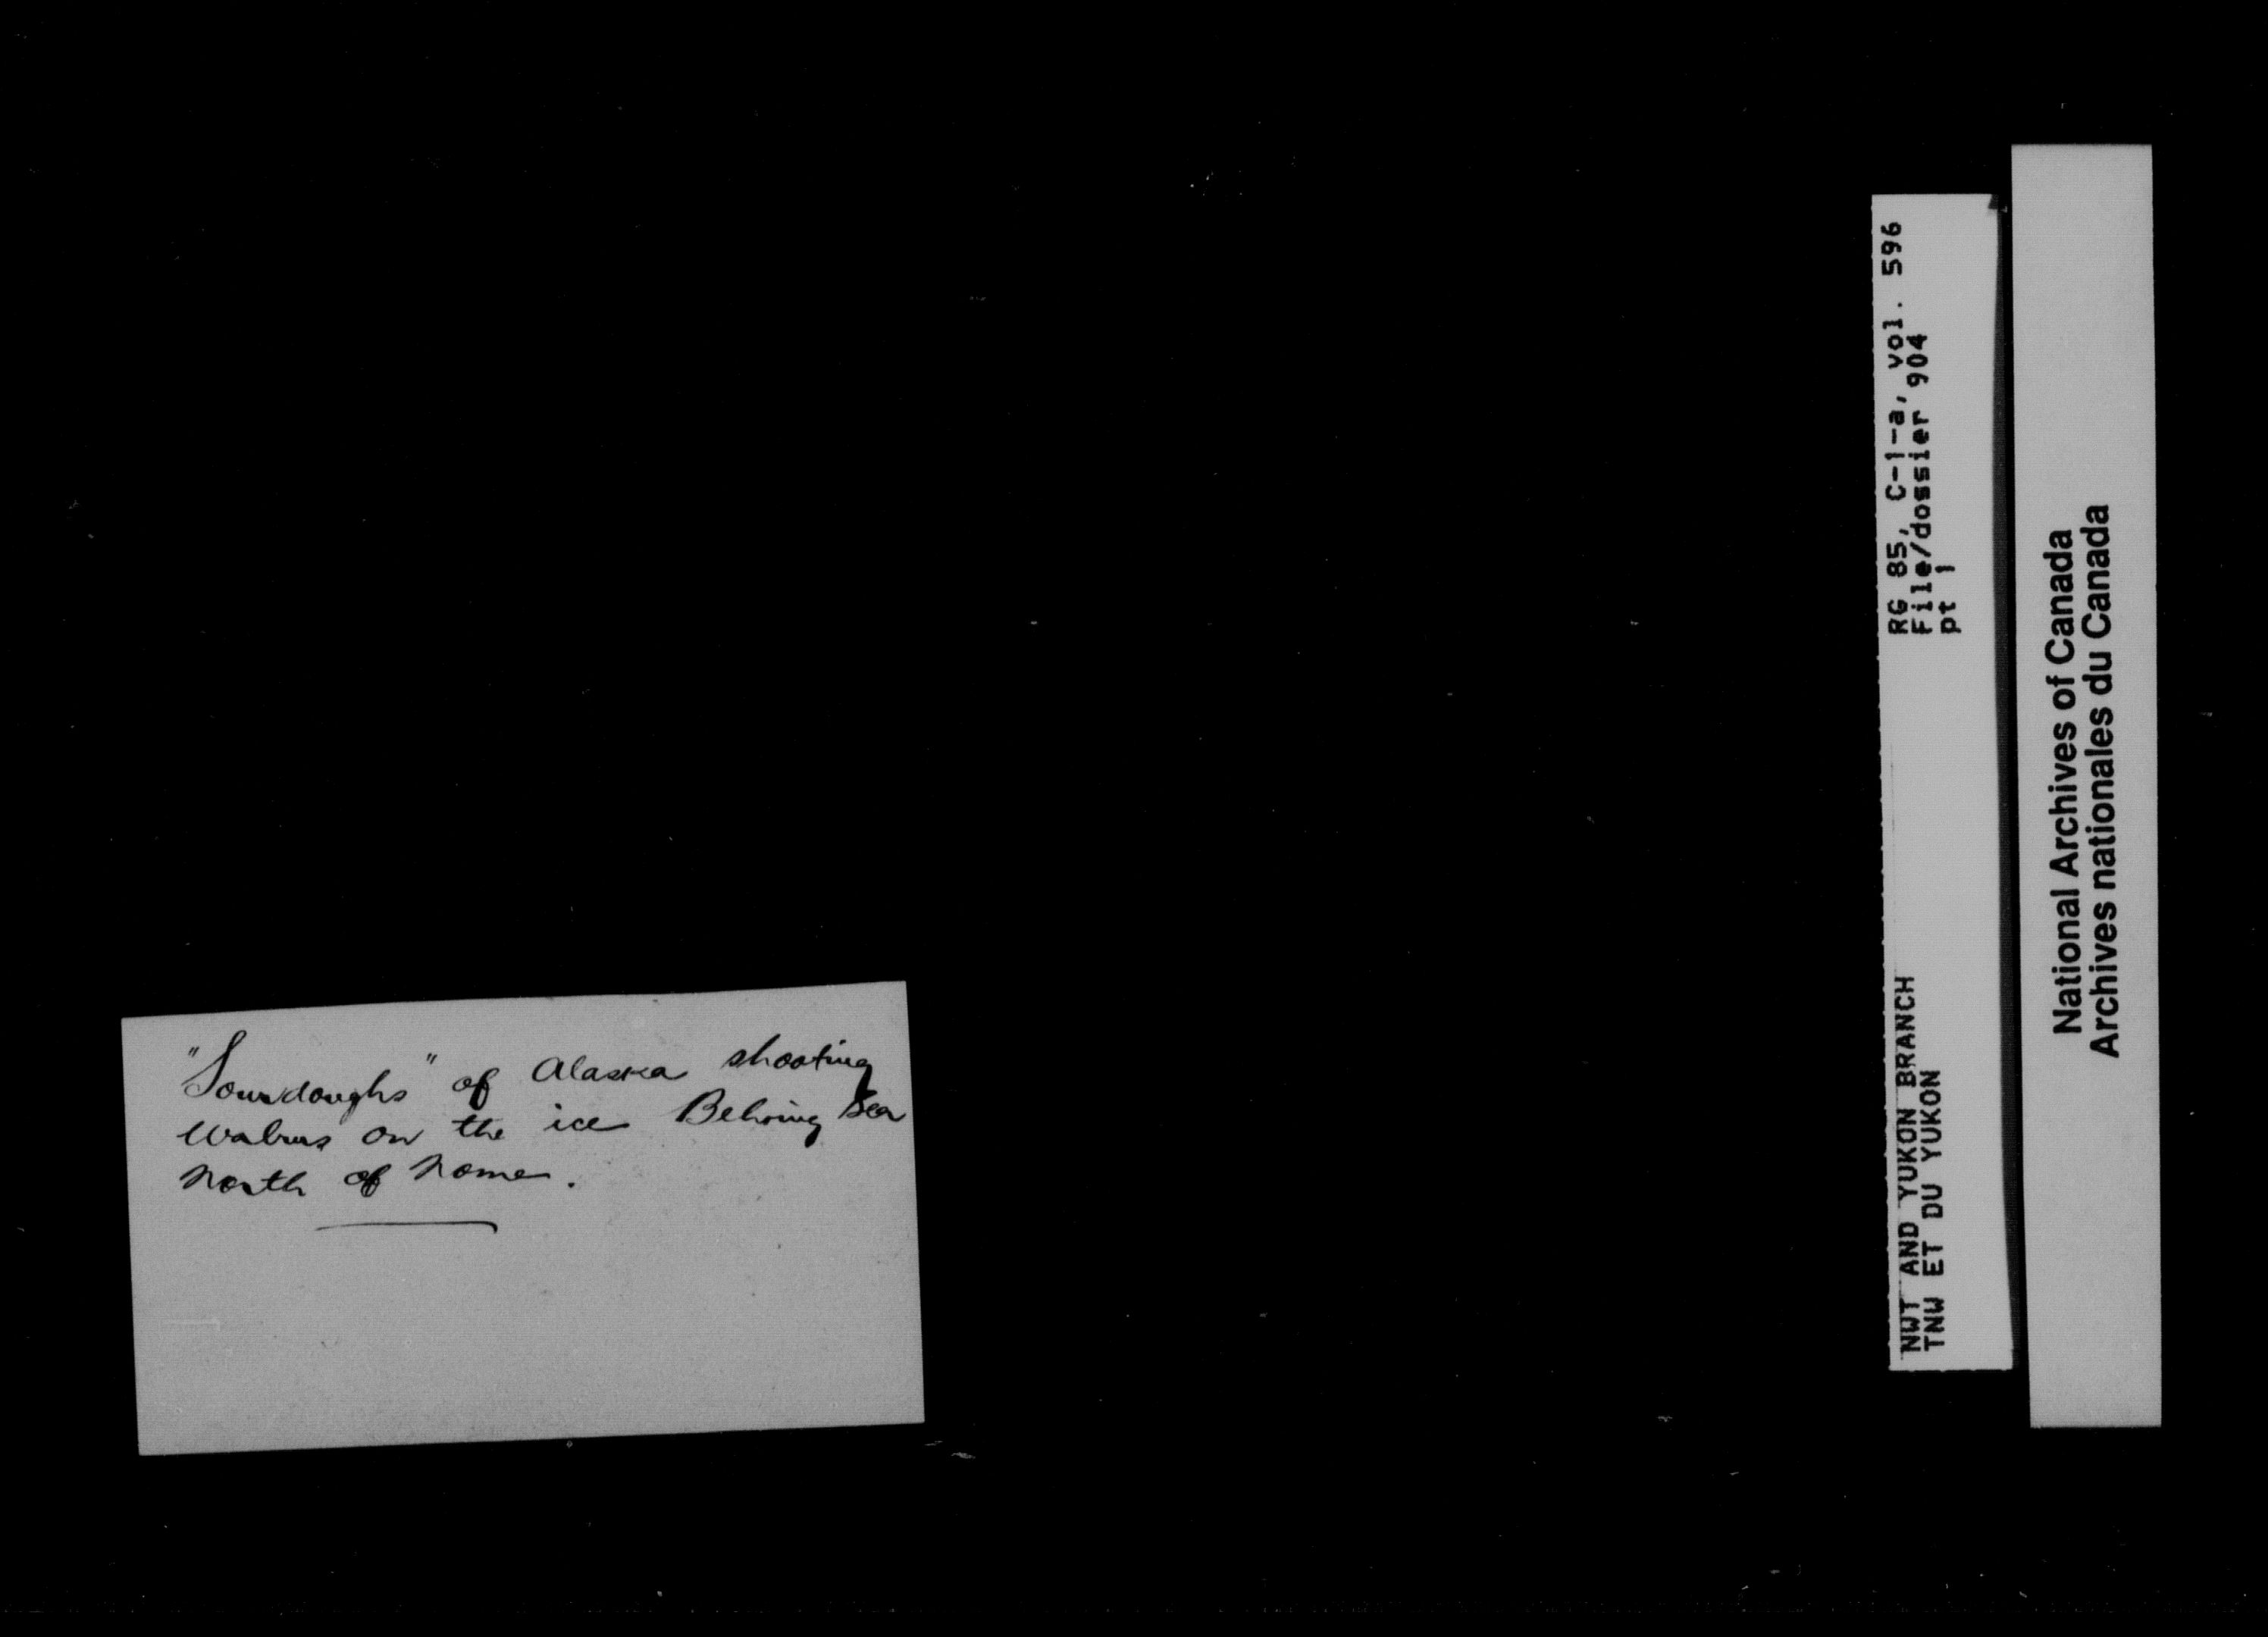 "Sourdoughs" of Alaska shooting
walrus on the ice Behring Sea
north of Nome.
RG 85, C-1-a, vol. 596
File/dossier 904
pt 1
NWT AND YUKON BRANCH
TNW ET DU YUKON
National Archives of Canada
Archives nationales du Canada